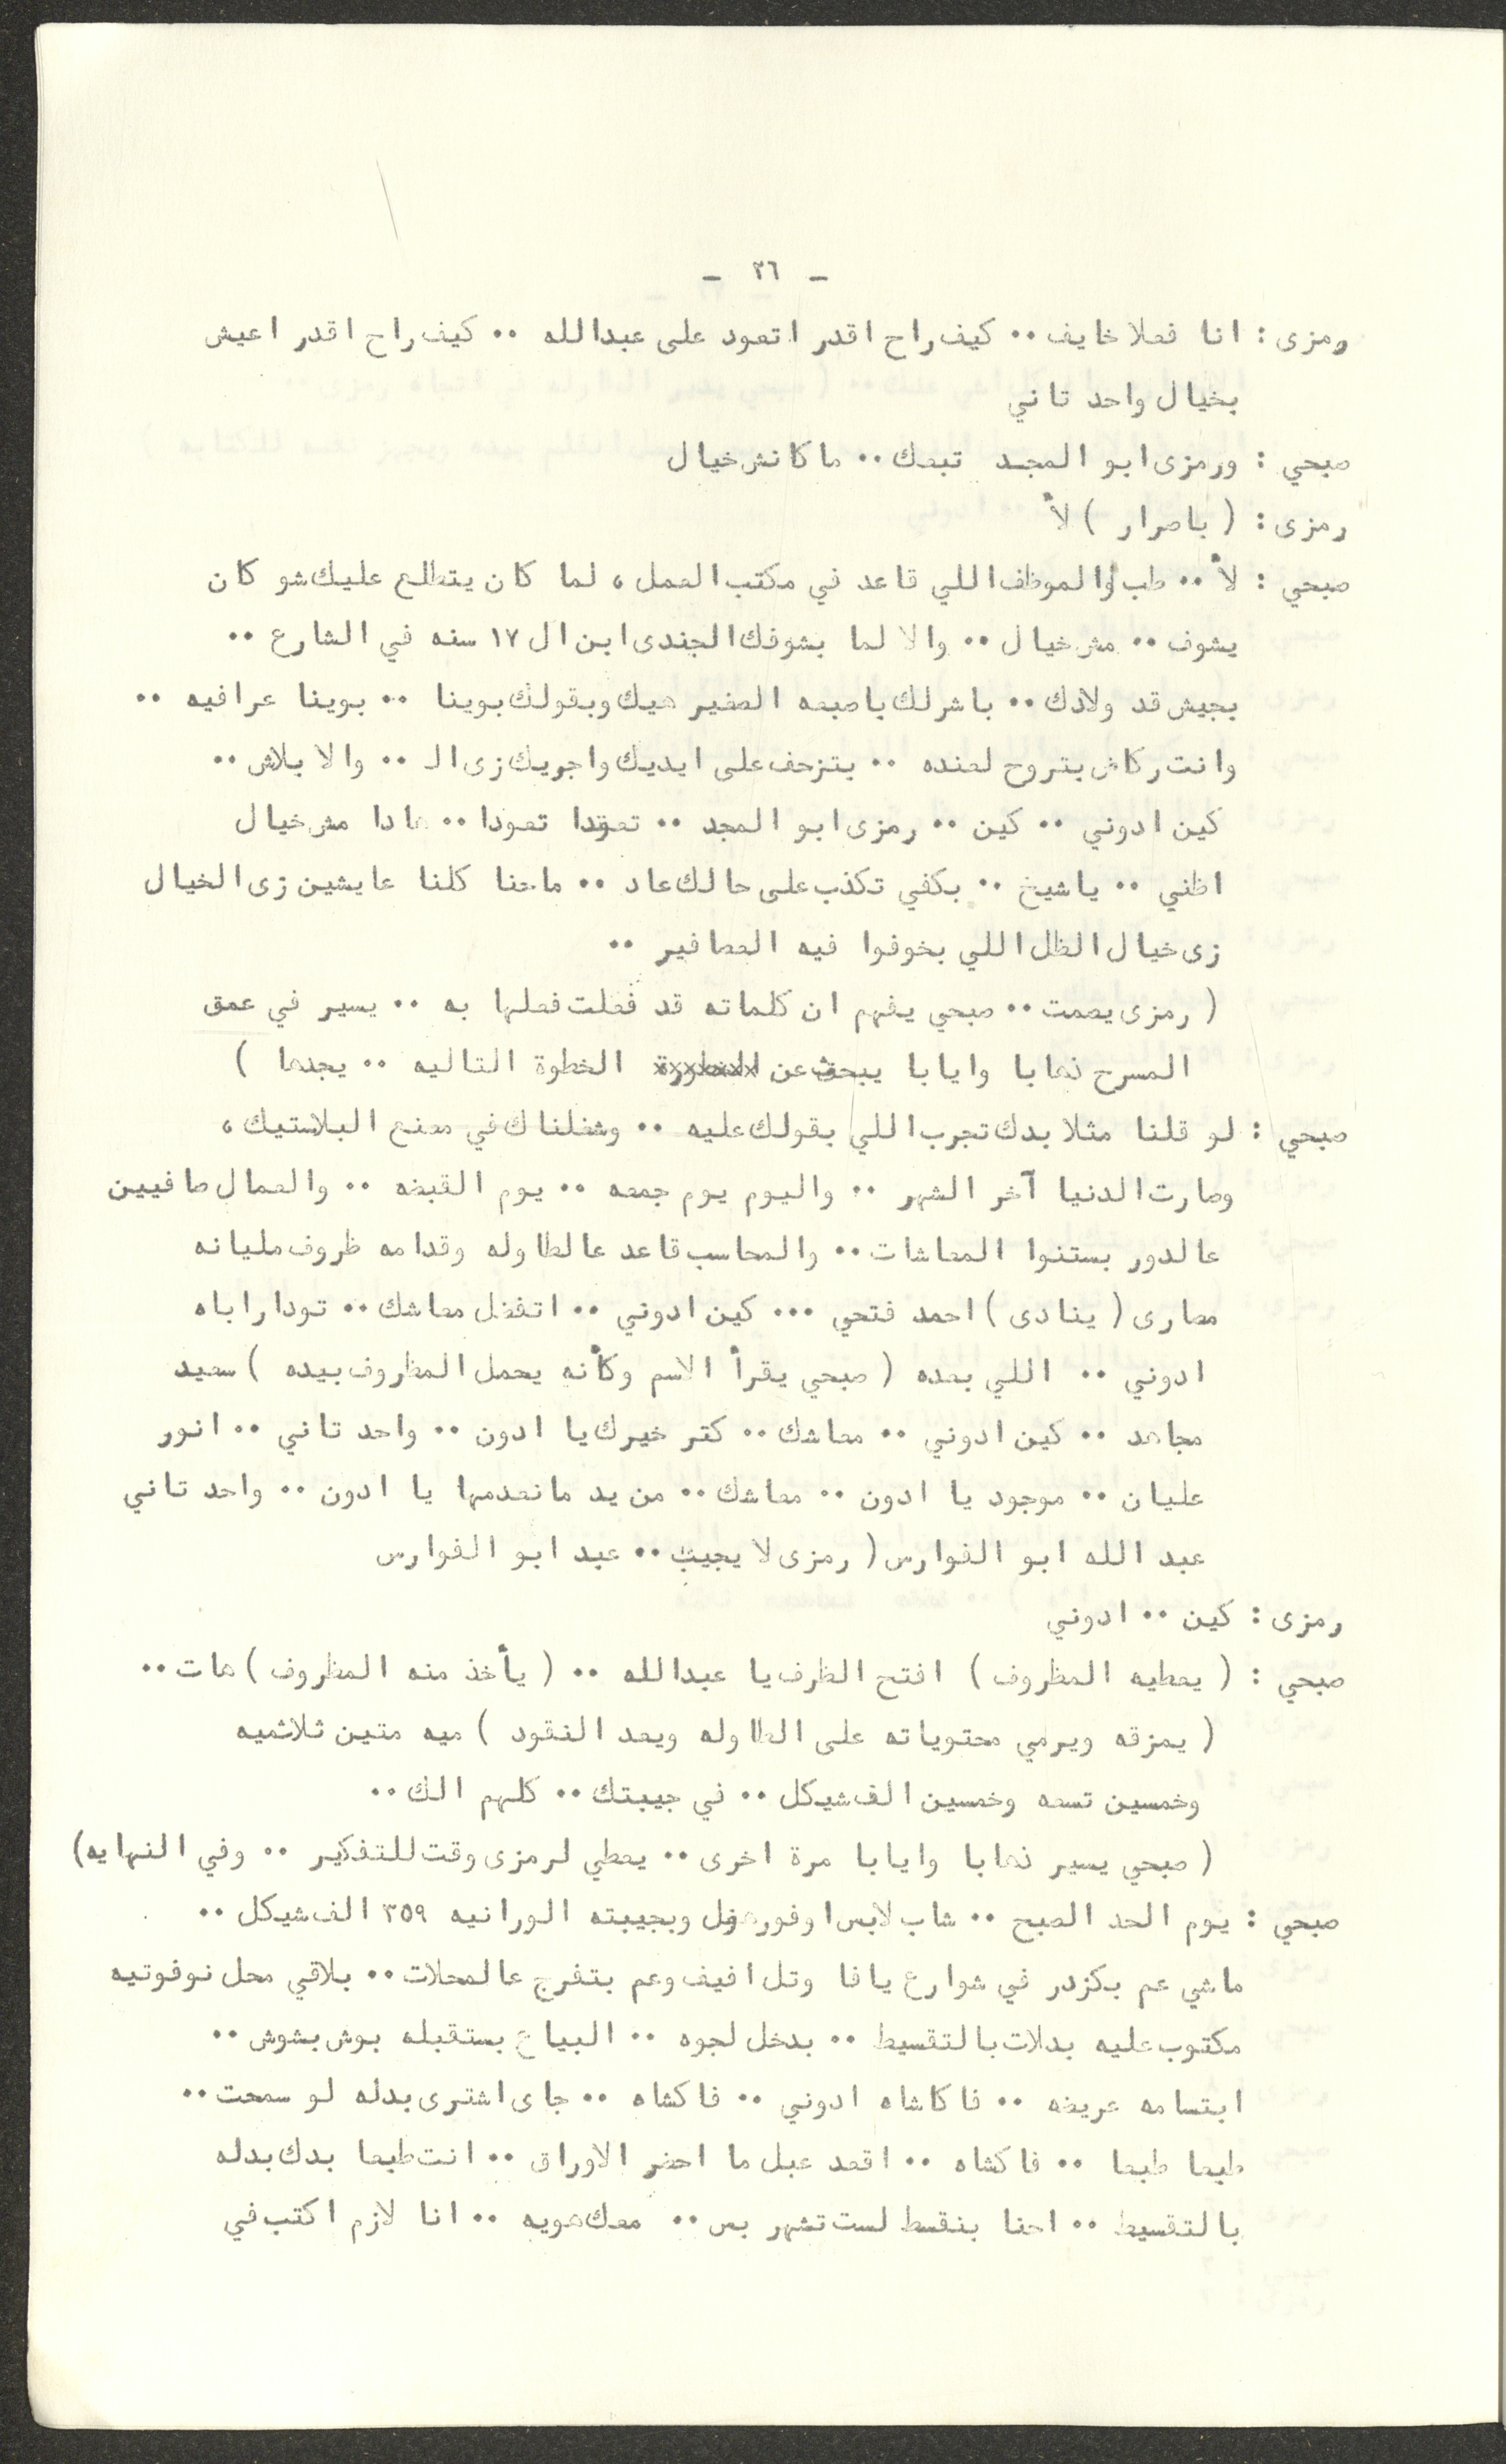 - ٣٦ -
رمزى : انا فعلا خايف .. كيف راح اقدر اتعود على عبدالله .. كيف راح اقدر اعيش
بخيال واحد تاني
صبحي : ورمزى ابو المجد تبعك .. ما كانش خيال
رمزى : ( باصرار ) لأ
صبحي : لأ .. طب والموظف اللي قاعد في مكتب العمل ، لما كان يتطلع عليك شو كان
يشوف .. مش خيال .. والا لما بشوفك الجندى ابن ال ١٧ سنه في الشارع ..
بجيش قد ولادك .. باشرلك باصبعه الصغير هيك وبقولك بوينا .. بوينا عرافيه ..
وانت ركاض بتروح لعنده .. بتزحف على ايديك واجريك زى الـ .. والا بلاش ..
كين ادوني .. كين .. رمزى ابو المجد .. تعودا تعودا .. هادا مش خيال
اظني .. يا شيخ .. بكفي تكذب على حالك عاد .. ماحنا كلنا عايشين زى الخيال
زى خيال الظل اللي بخوفوا فيه العصافير ..
( رمزى يصمت .. صبحي يفهم ان كلماته قد فعلت فعلها به .. يسير في عمق
المسرح ذهابا وايابا يبحث عن الخطوة التاليه .. يجدها )
صبحي : لو قلنا مثلا بدك تجرب اللي بقولك عليه .. وشغلناك في مصنع البلاستيك ،
وصارت الدنيا آخر الشهر .. واليوم يوم جمعه .. يوم القبضه .. والعمال صافيين
عالدور بستنوا المعاشات .. والمحاسب قاعد عالطاوله وقدامه ظروف مليانه
مصارى ( ينادى ) احمد فتحي ... كين ادوني .. اتفضل معاشك .. تودا راباه
ادوني .. اللي بعده ( صبحي يقرأ الاسم وكأنه يحمل المظروف بيده ) سعيد
مجاهد .. كين ادوني .. معاشك .. كتر خيرك يا ادون .. واحد تاني .. انور
عليان .. موجود يا ادون .. معاشك .. من يد مانعدمها يا ادون .. واحد تاني
عبد الله ابو الفوارس ( رمزى لا يجيب .. عبد ابو الفوارس
رمزى : كين .. ادوني
صبحي : ( يعطيه المظروف ) افتح الظرف يا عبدالله .. ( يأخذ منه المظروف ) هات ..
( يمزقه ويرمي محتوياته على الطاوله ويعد النقود ) ميه متين ثلاثميه
وخمسين تسعه وخمسين الف شيكل .. في جيبتك .. كلهم الك ..
( صبحي يسير ذهابا وايابا مرة اخرى .. يعطي لرمزى وقت للتفكير .. وفي النهايه )
صبحي : يوم الحد الصبح .. شاب لابس اوفورهول وبجيبته الورانيه ٣٥٩ الف شيكل ..
ماشي عم بكزدر في شوارع يافا وتل افيف وعم بتفرج عالمحلات .. بلاقي محل نوفوتيه
مكتوب عليه بدلات بالتقسيط .. بدخل لجوه .. البياع بستقبله بوش بشوش ..
ابتسامه عريضه .. فاكاشاه ادوني .. فاكشاه .. جاى اشترى بدله لو سمحت ..
طبعا طبعا .. فاكشاه .. اقعد عبل ما احضر الاوراق .. انت طبعا بدك بدله
بالتقسيط .. احنا بنقسط لست تشهر بس .. معك هويه .. انا لازم اكتب في